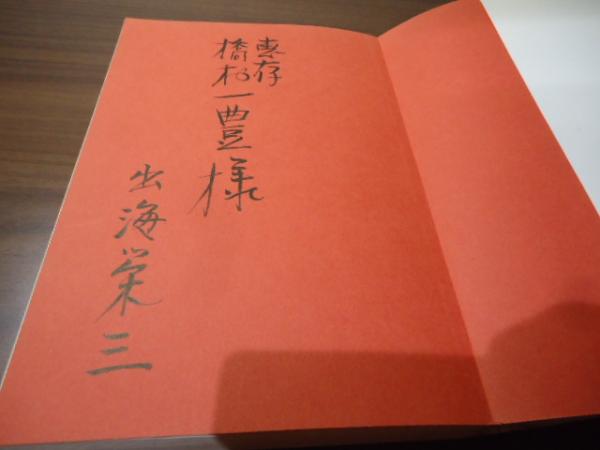 恵存
橋本一豊様
出海栄三